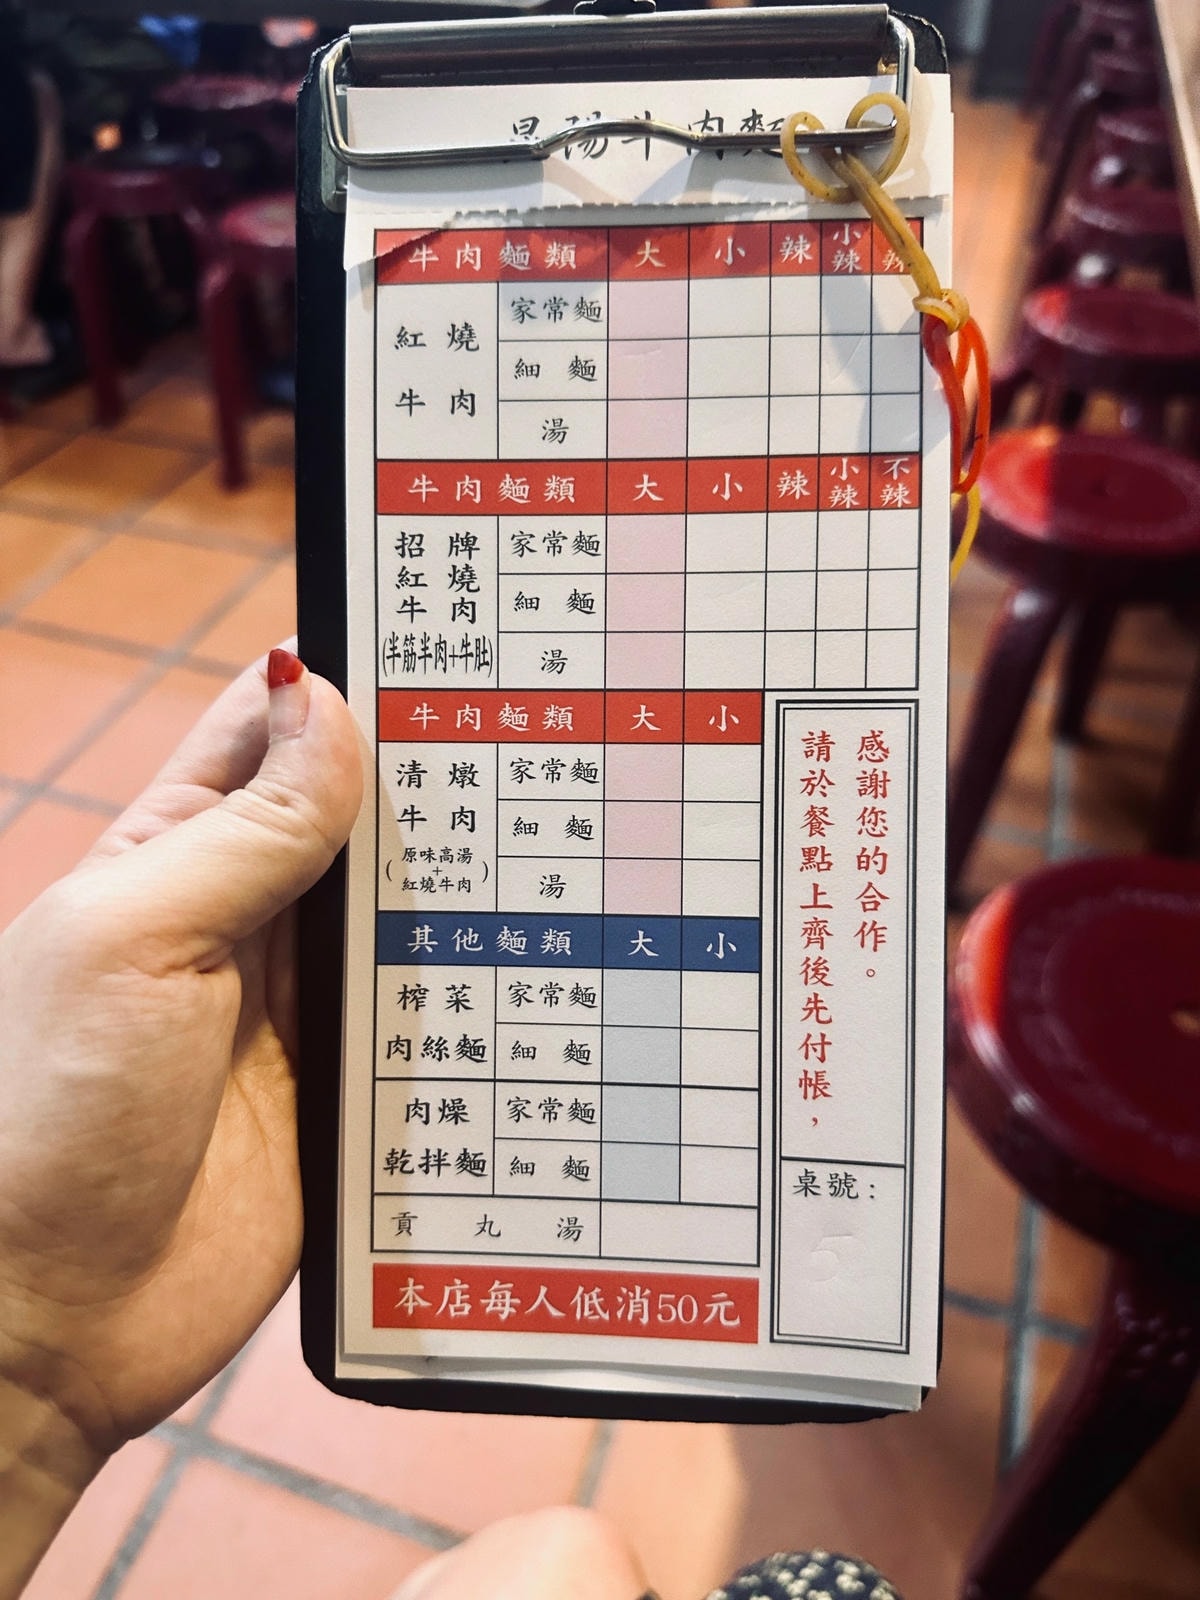 昆陽牛肉麵
牛肉麵類 大 小 辣 小辣 辣
紅燒牛肉 家常麵
細麵
湯
牛肉麵類 大 小 辣 小辣 不辣
招牌紅燒牛肉(半筋半肉+牛肚) 家常麵
細麵
湯
牛肉麵類 大 小
清燉牛肉(原味高湯+紅燒牛肉) 家常麵
細麵
湯
其他麵類 大 小
榨菜肉絲麵 家常麵
細麵
肉燥乾拌麵 家常麵
細麵
貢丸湯
本店每人低消50元
請於餐點上齊後先付帳，
感謝您的合作。
桌號:
5